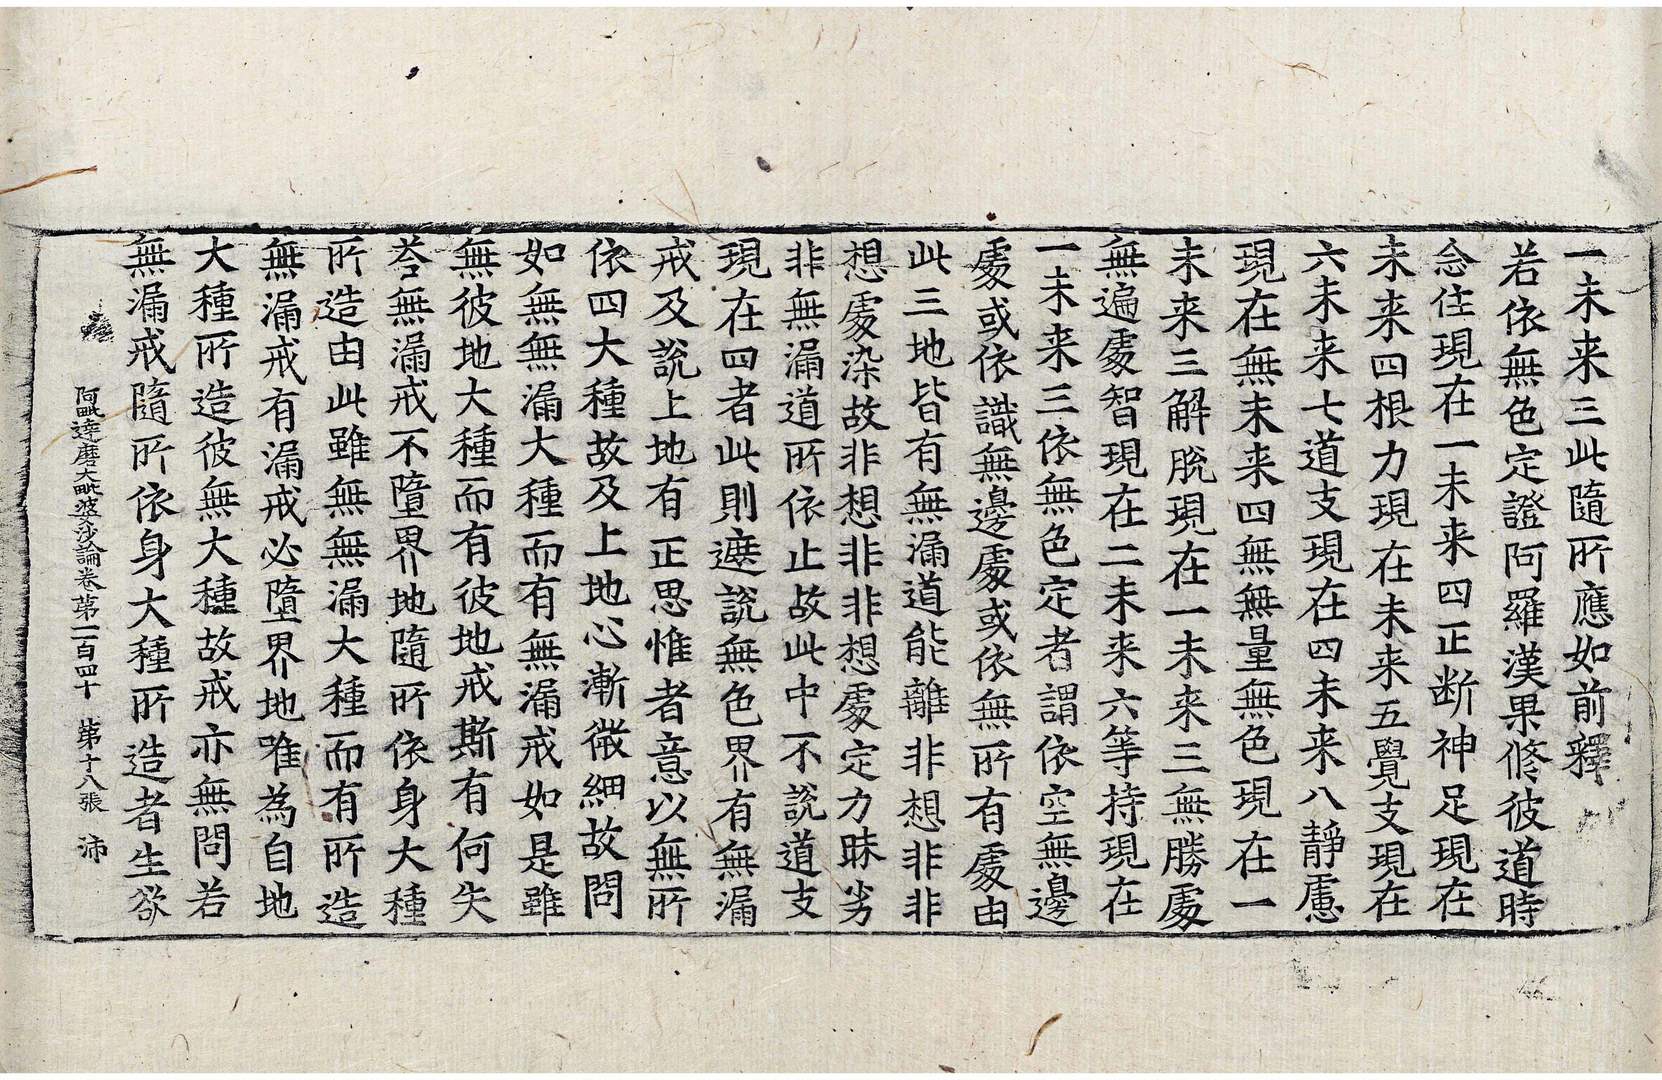 一未来三此隨所應如前釋
若依無色定證阿羅漢果修彼道時
念住現在一未来四正断神足現在
未来四根力現在未来五覺支現在
六未来七道支現在四未来八靜慮
現在無未来四無無量無色現在一
未来三解脫現在一未来三無勝處
無遍處智現在二未来六等持現在
一未来三依無色定者謂依空無邊
處或依識無邊處或依無所有處由
此三地皆有無漏道能離非想非非
想處染故非想非非想處定力昧劣
非無漏道所依止故此中不說道支
現在四者此則遮說無色界有無漏
戒及說上地有正思惟者意以無所
依四大種故及上地心漸微細故問
如無無漏大種而有無漏戒如是雖
無彼地大種而有彼地戒斯有何失
荅無漏戒不墮界地隨所依身大種
所造由此雖無無漏大種而有所造
無漏戒有漏戒必墮界地唯為自地
大種所造彼無大種故戒亦無問若
無漏戒隨所依身大種所造者生欲
阿毗達磨大毗婆沙論卷第一百四十　第十八張　沛